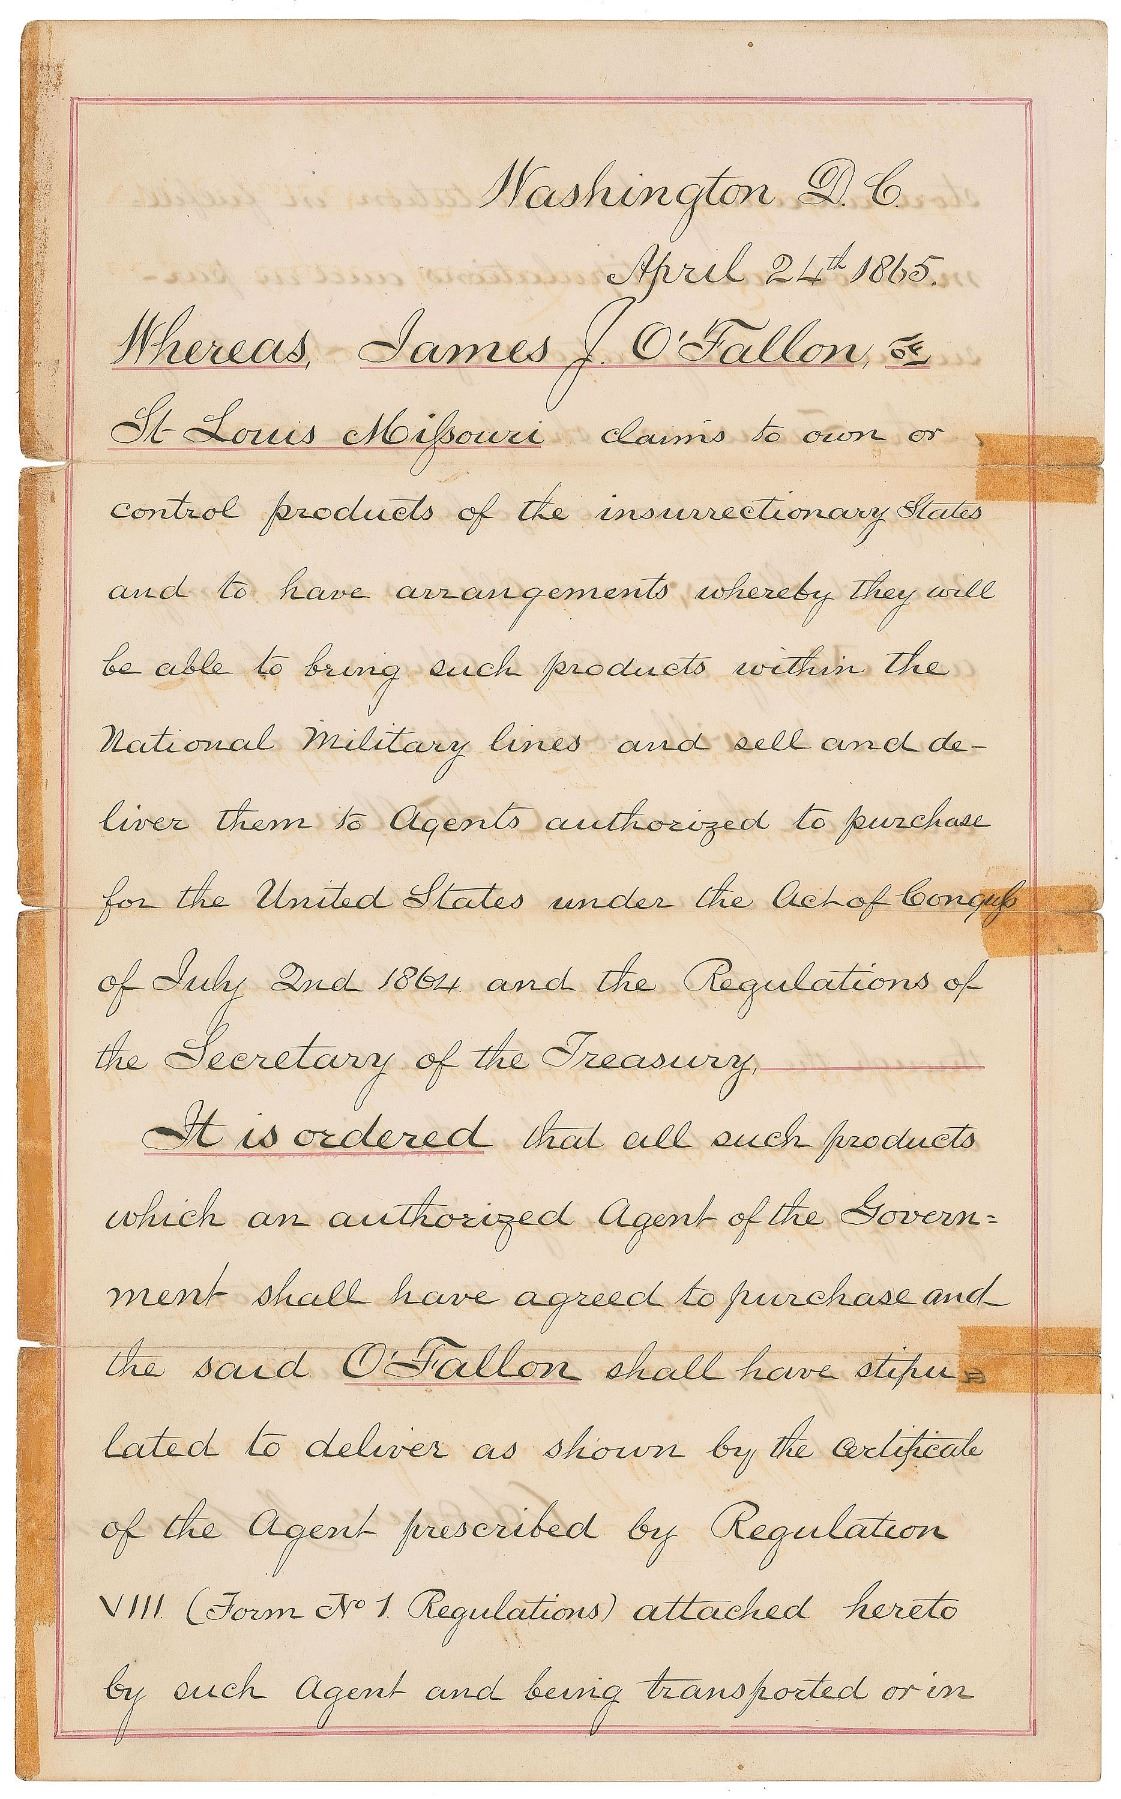 Washington D. C.
April 24th 1865.
Whereas, James J. O'Fallon, of
St Louis Missouri claims to own or
control products of the insurrectionary States
and to have arrangements whereby they will
be able to bring such products within the
National Military lines and sell and de-
liver them to Agents authorized to purchase
for the United States under the Act of Congress
of July 2nd 1864 and the Regulations of
the Secretary of the Treasury,
It is ordered that all such products
which an authorized Agent of the Govern=
ment shall have agreed to purchase and
the said O'Fallon shall have stipu
lated to deliver as shown by the certificate
of the Agent prescribed by Regulation
VIII (Form No 1. Regulations) attached hereto
by such Agent and being transported or in